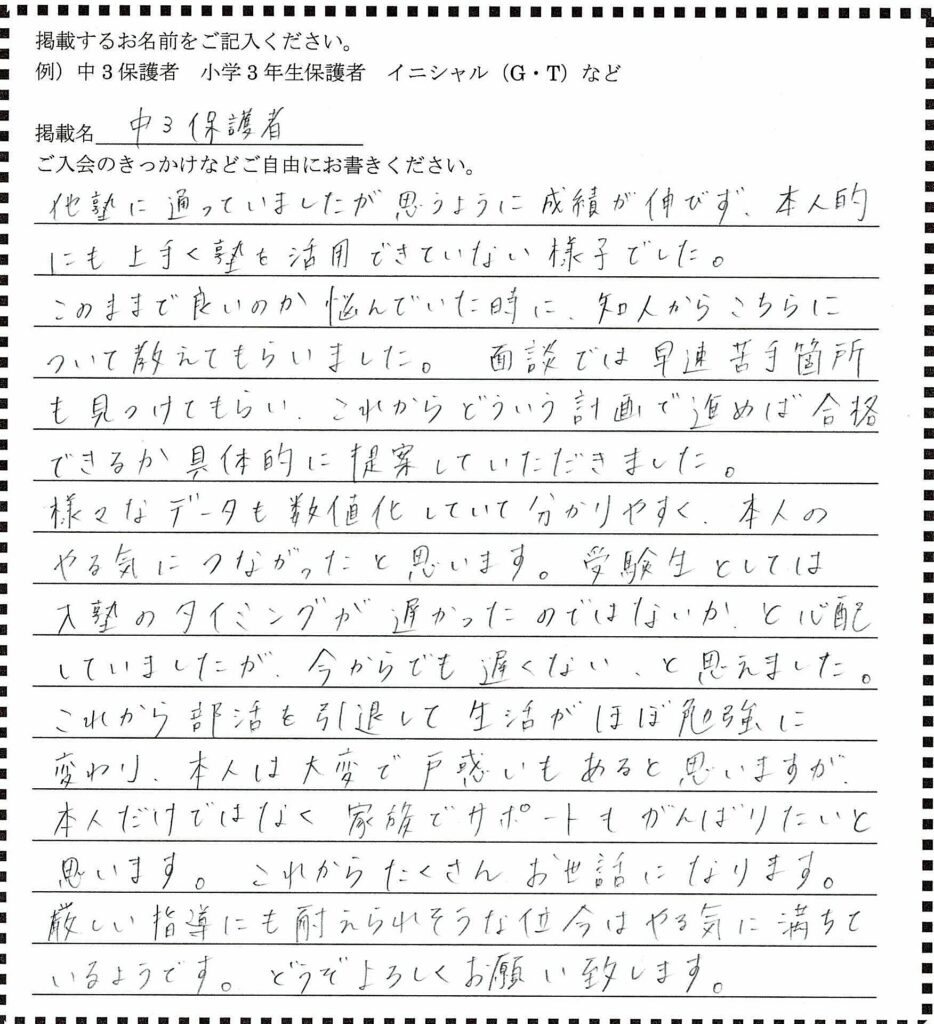 掲載するお名前をご記入ください。
例）中3保護者　小学3年生保護者　イニシャル（G・T）など
掲載名 中3保護者
ご入会のきっかけなどご自由にお書きください。
他塾に通っていましたが思うように成績が伸びず、本人的
にも上手く塾を活用できていない様子でした。
このままで良いのか悩んでいた時に、知人からこちらに
ついて教えてもらいました。面談では早速苦手箇所
も見つけてもらい、これからどういう計画で進めば合格
できるか具体的に提案していただきました。
様々なデータも数値化していて分かりやすく、本人の
やる気につながったと思います。受験生としては
入塾のタイミングが遅かったのではないか、と心配
していましたが、今からでも遅くない、と思えました。
これから部活を引退して生活がほぼ勉強に
変わり、本人は大変で戸惑いもあると思いますが、
本人だけではなく家族でサポートもがんばりたいと
思います。これからたくさんお世話になります。
厳しい指導にも耐えられそうな位今はやる気に満ちて
いるようです。どうぞよろしくお願い致します。